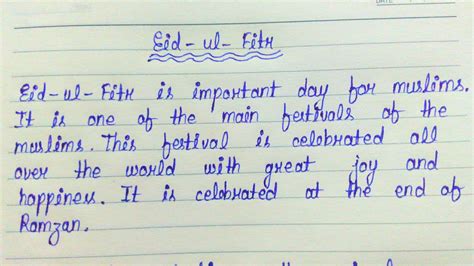 Eid-ul-Fitr
Eid-ul-Fitr is important day for muslims.
It is one of the main festivals of the
muslims. This festival is celebrated all
over the world with great joy and
happiness. It is celebrated at the end of
Ramzan.